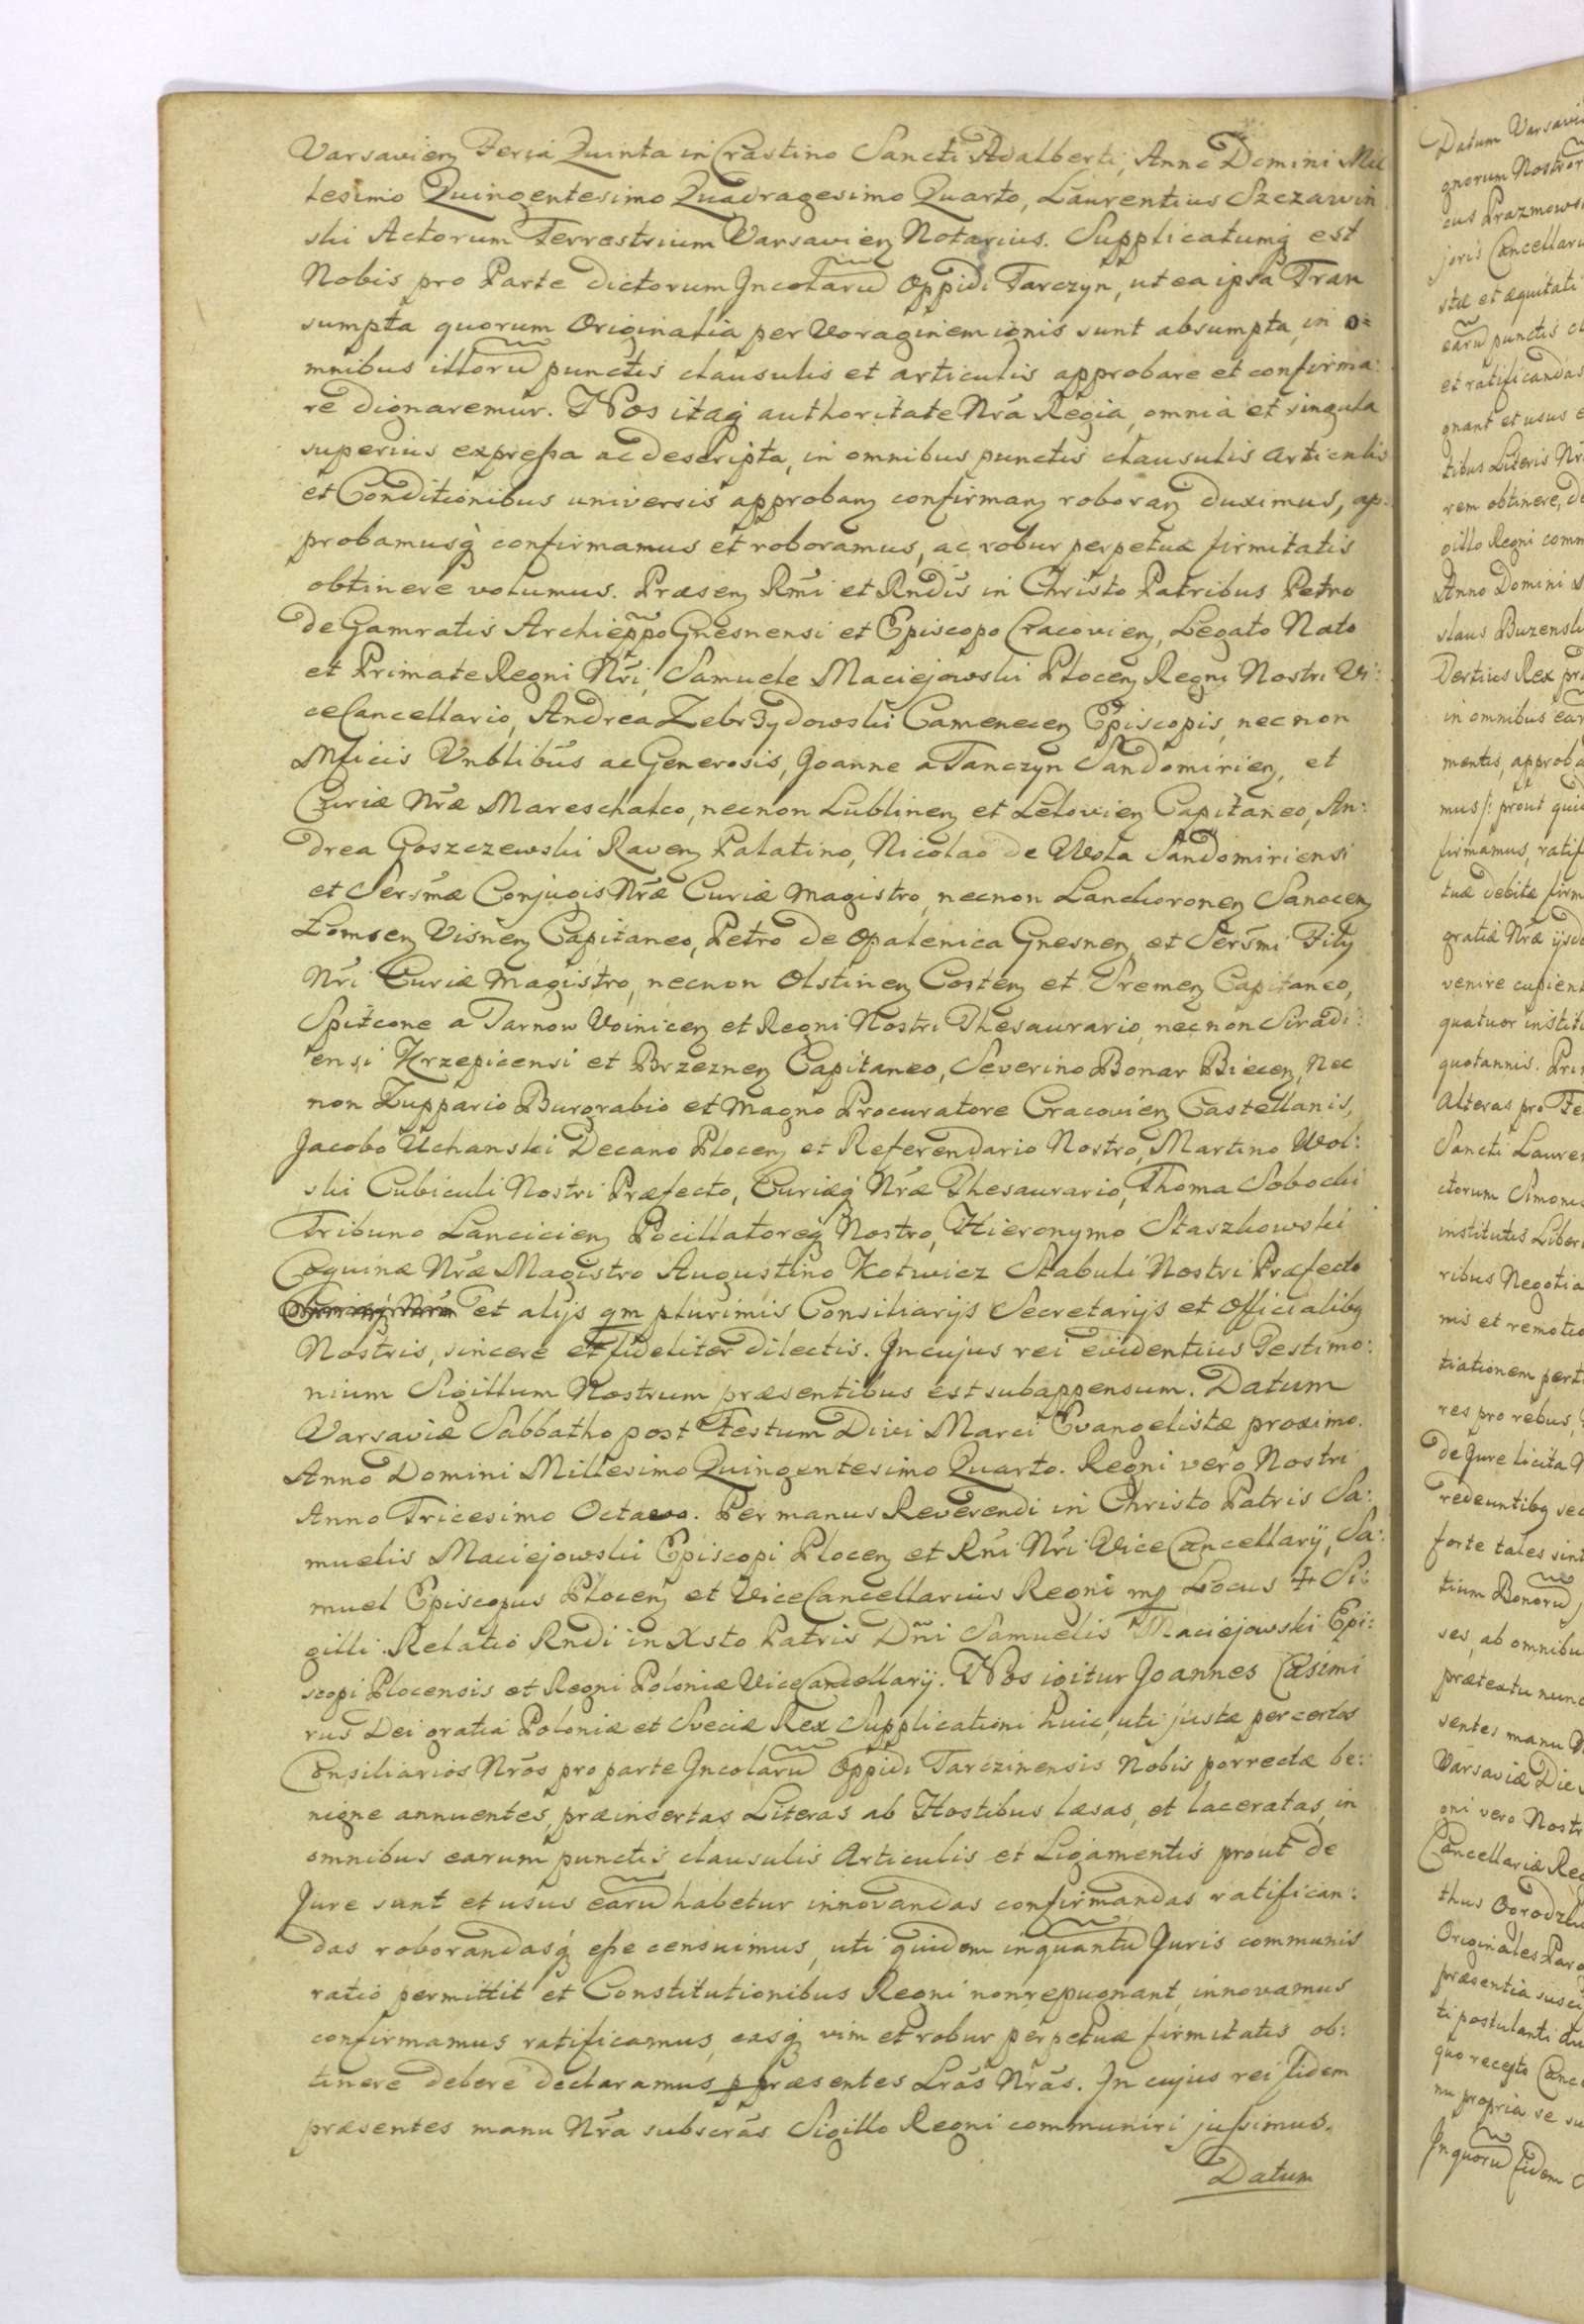 Varsavien Feria Quinta in Crastino Sancti Adalberti, Anno Domini Mil
lesimo Quingentesimo Quadragesimo Quarto, Laurentius Szczawin
ski Actorum Terrestrium Varsavien Notarius. Supplicatumq est
Nobis pro Parte dictorum Incolarũ Oppidi Tarczyn, ut ea ipsa Tran
sumpta quorum Originalia per Voraginem ignis sunt absumpta, in o=
mnibus illorũ punctis clausulis et articulis approbare et confirma:
re dignaremur. Nos itaq authoritate Nrã Regia, omnia et singula
superius expressa ac descripta, in omnibus punctis clausulis articulis
et Conditionibus universis approban confirman roboran duximus, ap:
probamusq confirmamus et roboramus, ac robur perpetuæ firmitatis
obtinere volumus. Præsen Rmi et Rndis in Christo Patribus Petro
de Gamratis Archieppo Gnesnensi et Episcopo Cracovien, Legato Nato
et Primate Regni Nri, Samuele Maciejowski Plocen Regni Nostri Vi:
ceCancellario, Andrea Zebrzydowski Camenecen Episcopis, nec non
Mficis Vnblibus ac Generosis, Joanne a Tanczyn Sandomirien, et
Curiæ Nræ Mareschalco, necnon Lublinen et Lelovien Capitaneo, An:
drea Goszczewski Raven Palatino, Nicolao de Wola Sandomiriensi
et Sersmæ Conjugis Nræ Curiæ Magistro, necnon Lanckoronen Sanocen
Lomsen Visnen Capitaneo, Petro de Opalenica Gnesnen, et Sersmi Filij
Nri Curiæ Magistro, necnon Olstinen Costen et Sremen Capitaneo,
Spitcone a Tarnow Voinicen et Regni Nostri Thesaurario, necnon Siradi:
ensi Krzepicensi et Brzeznen Capitaneo, Severino Bonar Biecen, Nec
non Zuppario Burgrabio et Magno Procuratore Cracovien Castellanis,
Jacobo Uchanski Decano Plocen et Referendario Nostro, Martino Wol:
ski Cubiculi Nostri Præfecto, Curiæq Nræ Thesaurario, Thoma Sobocki
Tribuno Lancicien Pocillatoreq Nostro, Hieronymo Staszkowski
Coquinæ Nræ Magistro Augustino Kotwicz Stabuli Nostri Præfecto
et alijs qm plurimis Consiliarijs Secretarijs et Officialibq
Nostris, sincere et fideliter dilectis. In cujus rei evidentius Testimo:
nium Sigillum Nostrum præsentibus est subappensum. Datum
Varsaviæ Sabbatho post Festum Divi Marci Evangelistæ proximo.
Anno Domini Millesimo Quingentesimo Quarto. Regni vero Nostri
Anno Tricesimo Octavo. Per manus Reverendi in Christo Patris Sa:
muelis Maciejowski Episcopi Plocen et Rni Nri ViceCancellarij, Sa:
muel Episcopus Plocen et ViceCancellarius Regni mp Locus ✝ Si:
gilli. Relatio Rndi in Xsto Patris Dni Samuelis Maciejowski Epi:
scopi Plocensis et Regni Poloniæ ViceCancellarij. Nos igitur Joannes Casimi
rus Dei gratia Poloniæ et Sveciæ Rex Supplicationi huic, uti justæ per certos
Consiliarios Nros pro parte Incolarũ Oppidi Tarczinensis Nobis porrectæ be:
nigne annuentes, præinsertas Literas ab Hostibus læsas, et laceratas, in
omnibus earum punctis, clausulis Articulis et Ligamentis prout de
Jure sunt et usus earũ habetur innovandas confirmandas ratifican:
das roborandasq esse censuimus, uti quidem inquantũ Juris communis
ratio permittit et Constitutionibus Regni non repugnant, innovamus
confirmamus ratificamus, easq vim et robur perpetuæ firmitatis ob:
tinere debere declaramus p præsentes Lras Nras. In cujus rei fidem
præsentes manu Nra subscras Sigillo Regni communiri jussimus.
Datum
Datum Varsavi
gnorum Nostror
cus Prazmows
joris Cancellari
stæ et æquitati
earũ punctis cl
et ratificandas
gnant et usus e
tibus Literis Nr
rem obtinere, de
gillo Regni comm
Anno Domini
slaus Buzensk
Tertius Rex pr
in omnibus ear
mentis, approba
mus /: prout qui
firmamus, ratif
tuæ debitæ firm
gratiæ Nræ ijsd
venire cupient
quatuor instit
quotannis. Pri
Alteras pro Fe
Sancti Lauren
ctorum Simonis
institutis Liber
ribus Negotia
nis et remotio
tiationem perti
res pro rebus,
de Jure licita
redeuntibq sec
forte tales sint
tium Bonorũ
ses, ab omnibu
prætextu nunc
sentes manu
Varsaviæ Die
gni vero Nostr
Cancellariæ Reg
thus Ogrodzki
Originales Parg
præsentia susci
ti postulanti du
quo recepto Canc
nu propria se su
In quorũ fidem